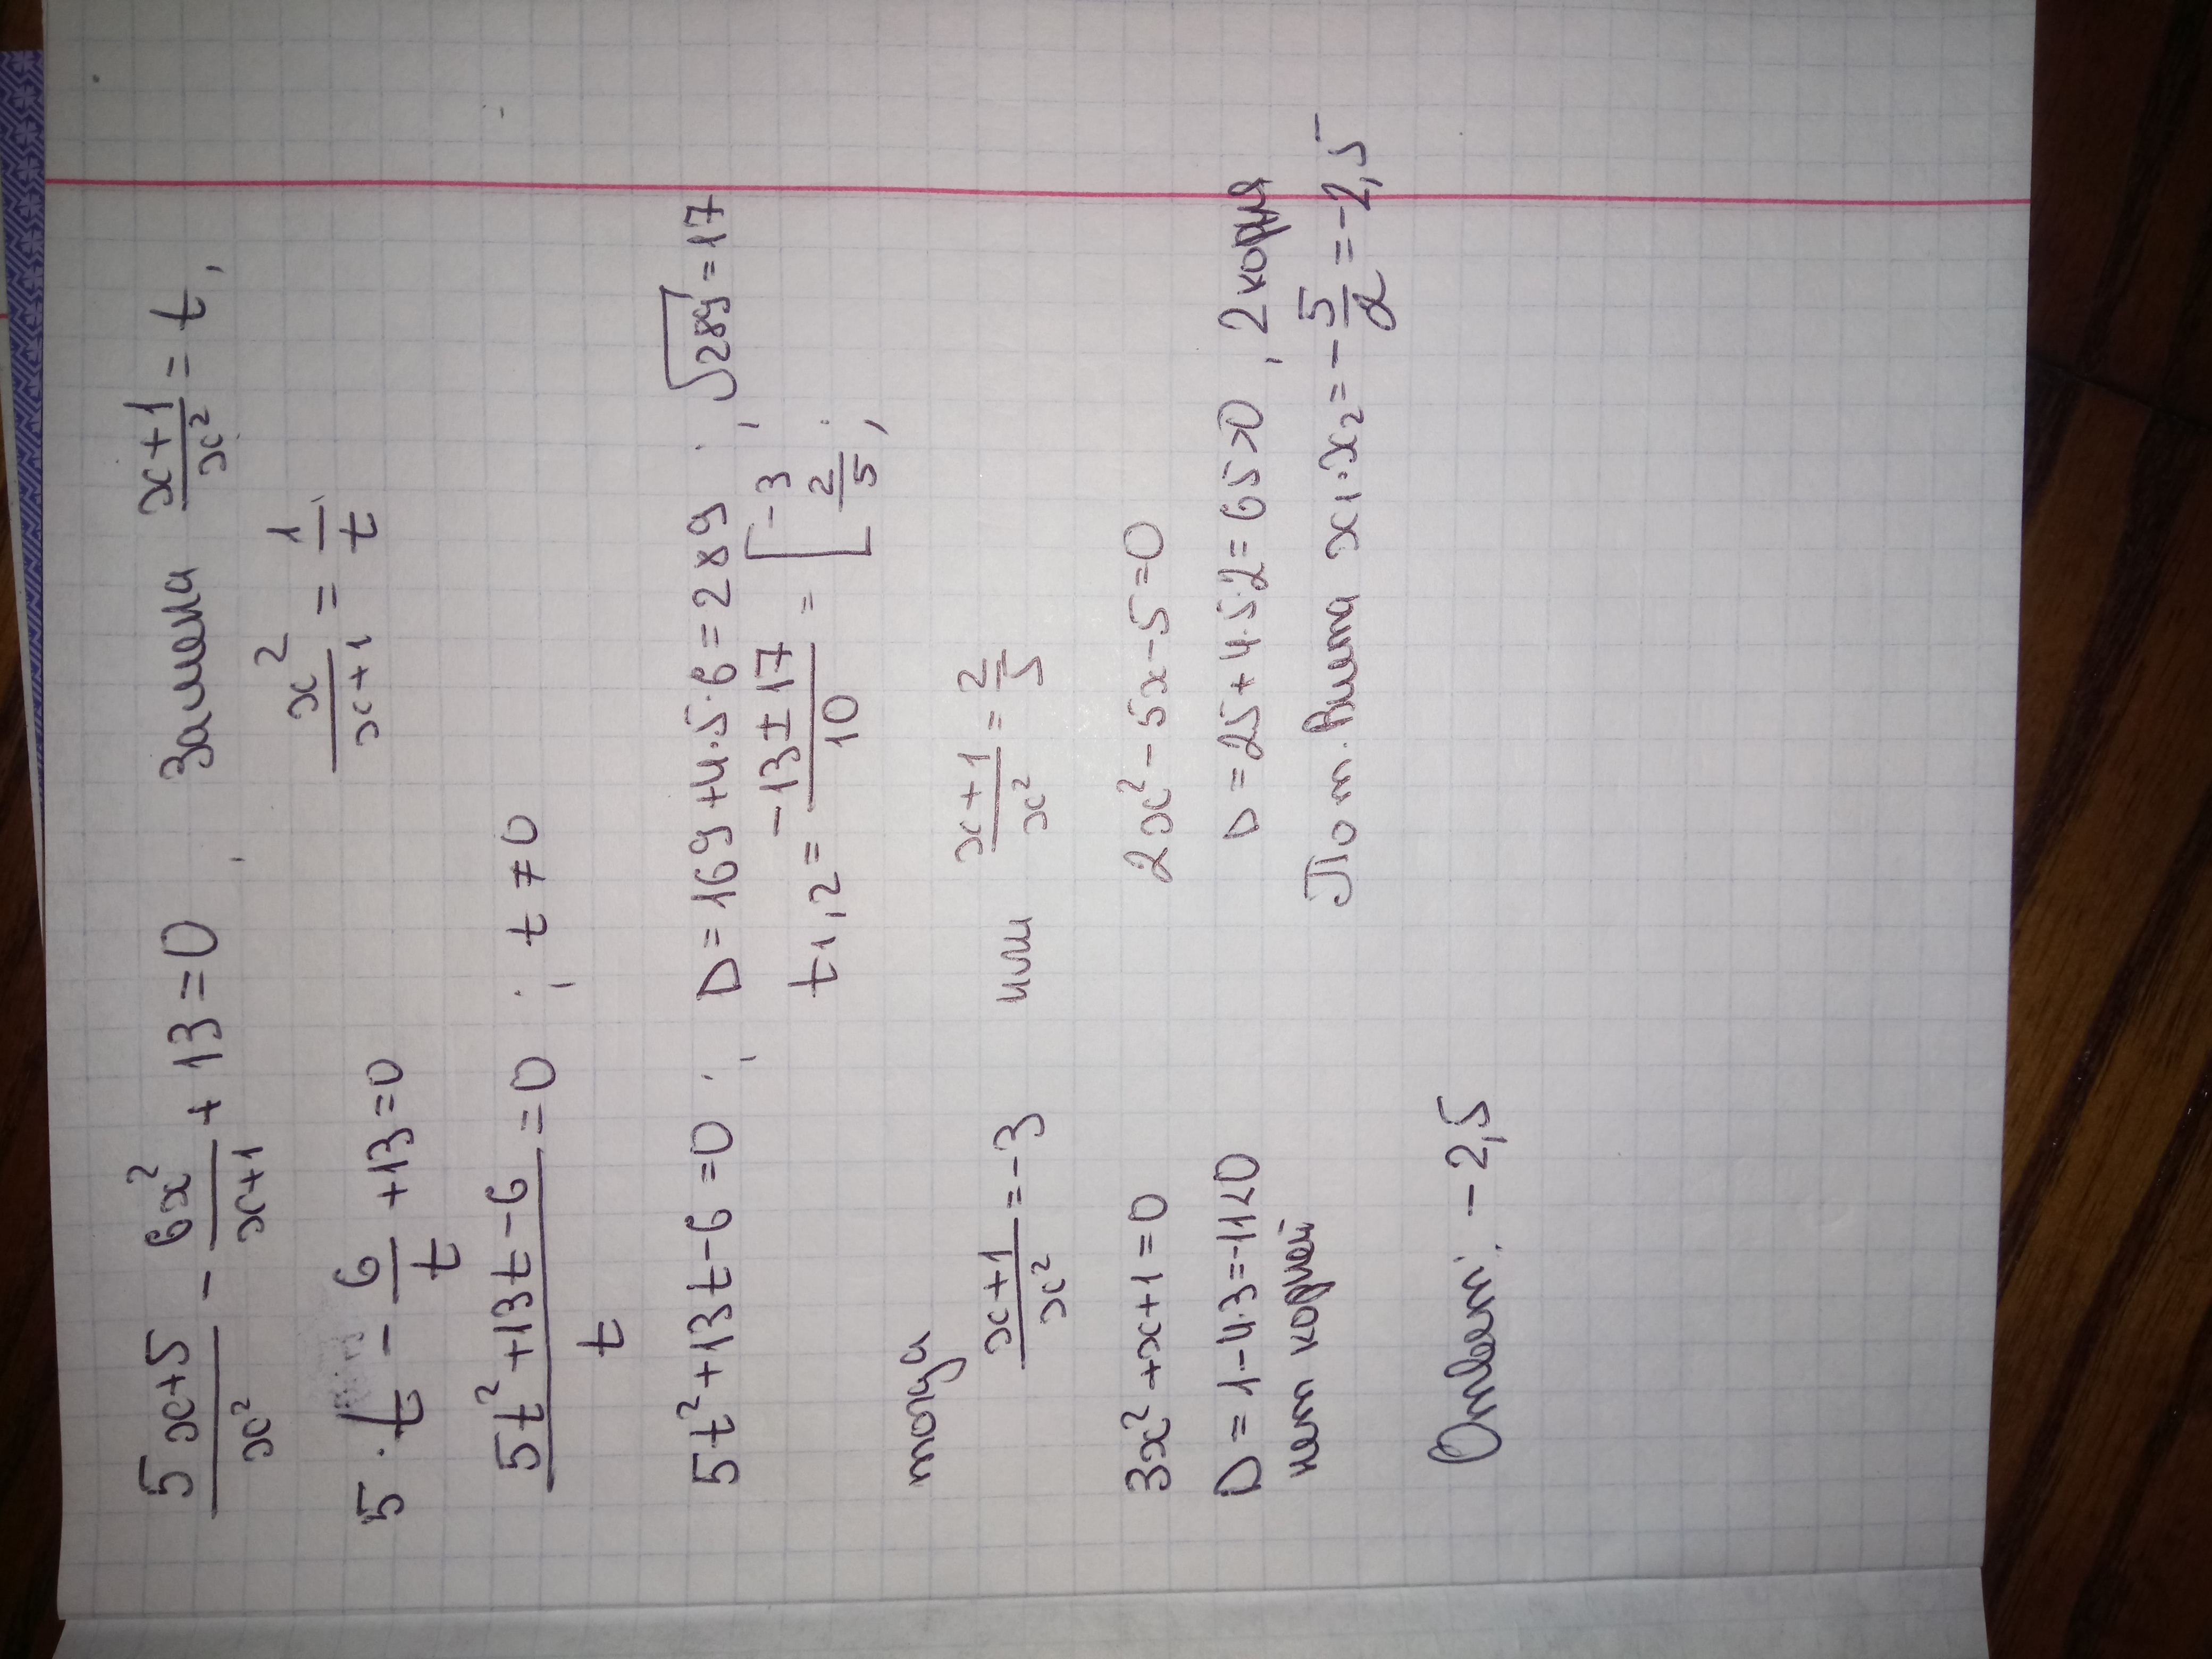 (5x+5)/x² - 6x²/(x+1) + 13 = 0 Замена (x+1)/x² = t,
x²/(x+1) = 1/t
5·t - 6/t + 13 = 0
(5t² + 13t - 6)/t = 0 ; t ≠ 0
5t² + 13t - 6 = 0 ; D = 169 + 4·5·6 = 289 ; √289 = 17
t1,2 = (-13 ± 17)/10 = [-3 2/5 ;
тогда
(x+1)/x² = -3 или (x+1)/x² = 2/5
3x² + x + 1 = 0 2x² - 5x - 5 = 0
D = 1 - 4·3 = -11 < 0 D = 25 + 4·5·2 = 65 > 0, 2 корня
нет корней По т. Виета x1·x2 = -5/2 = -2,5
Ответ: -2,5